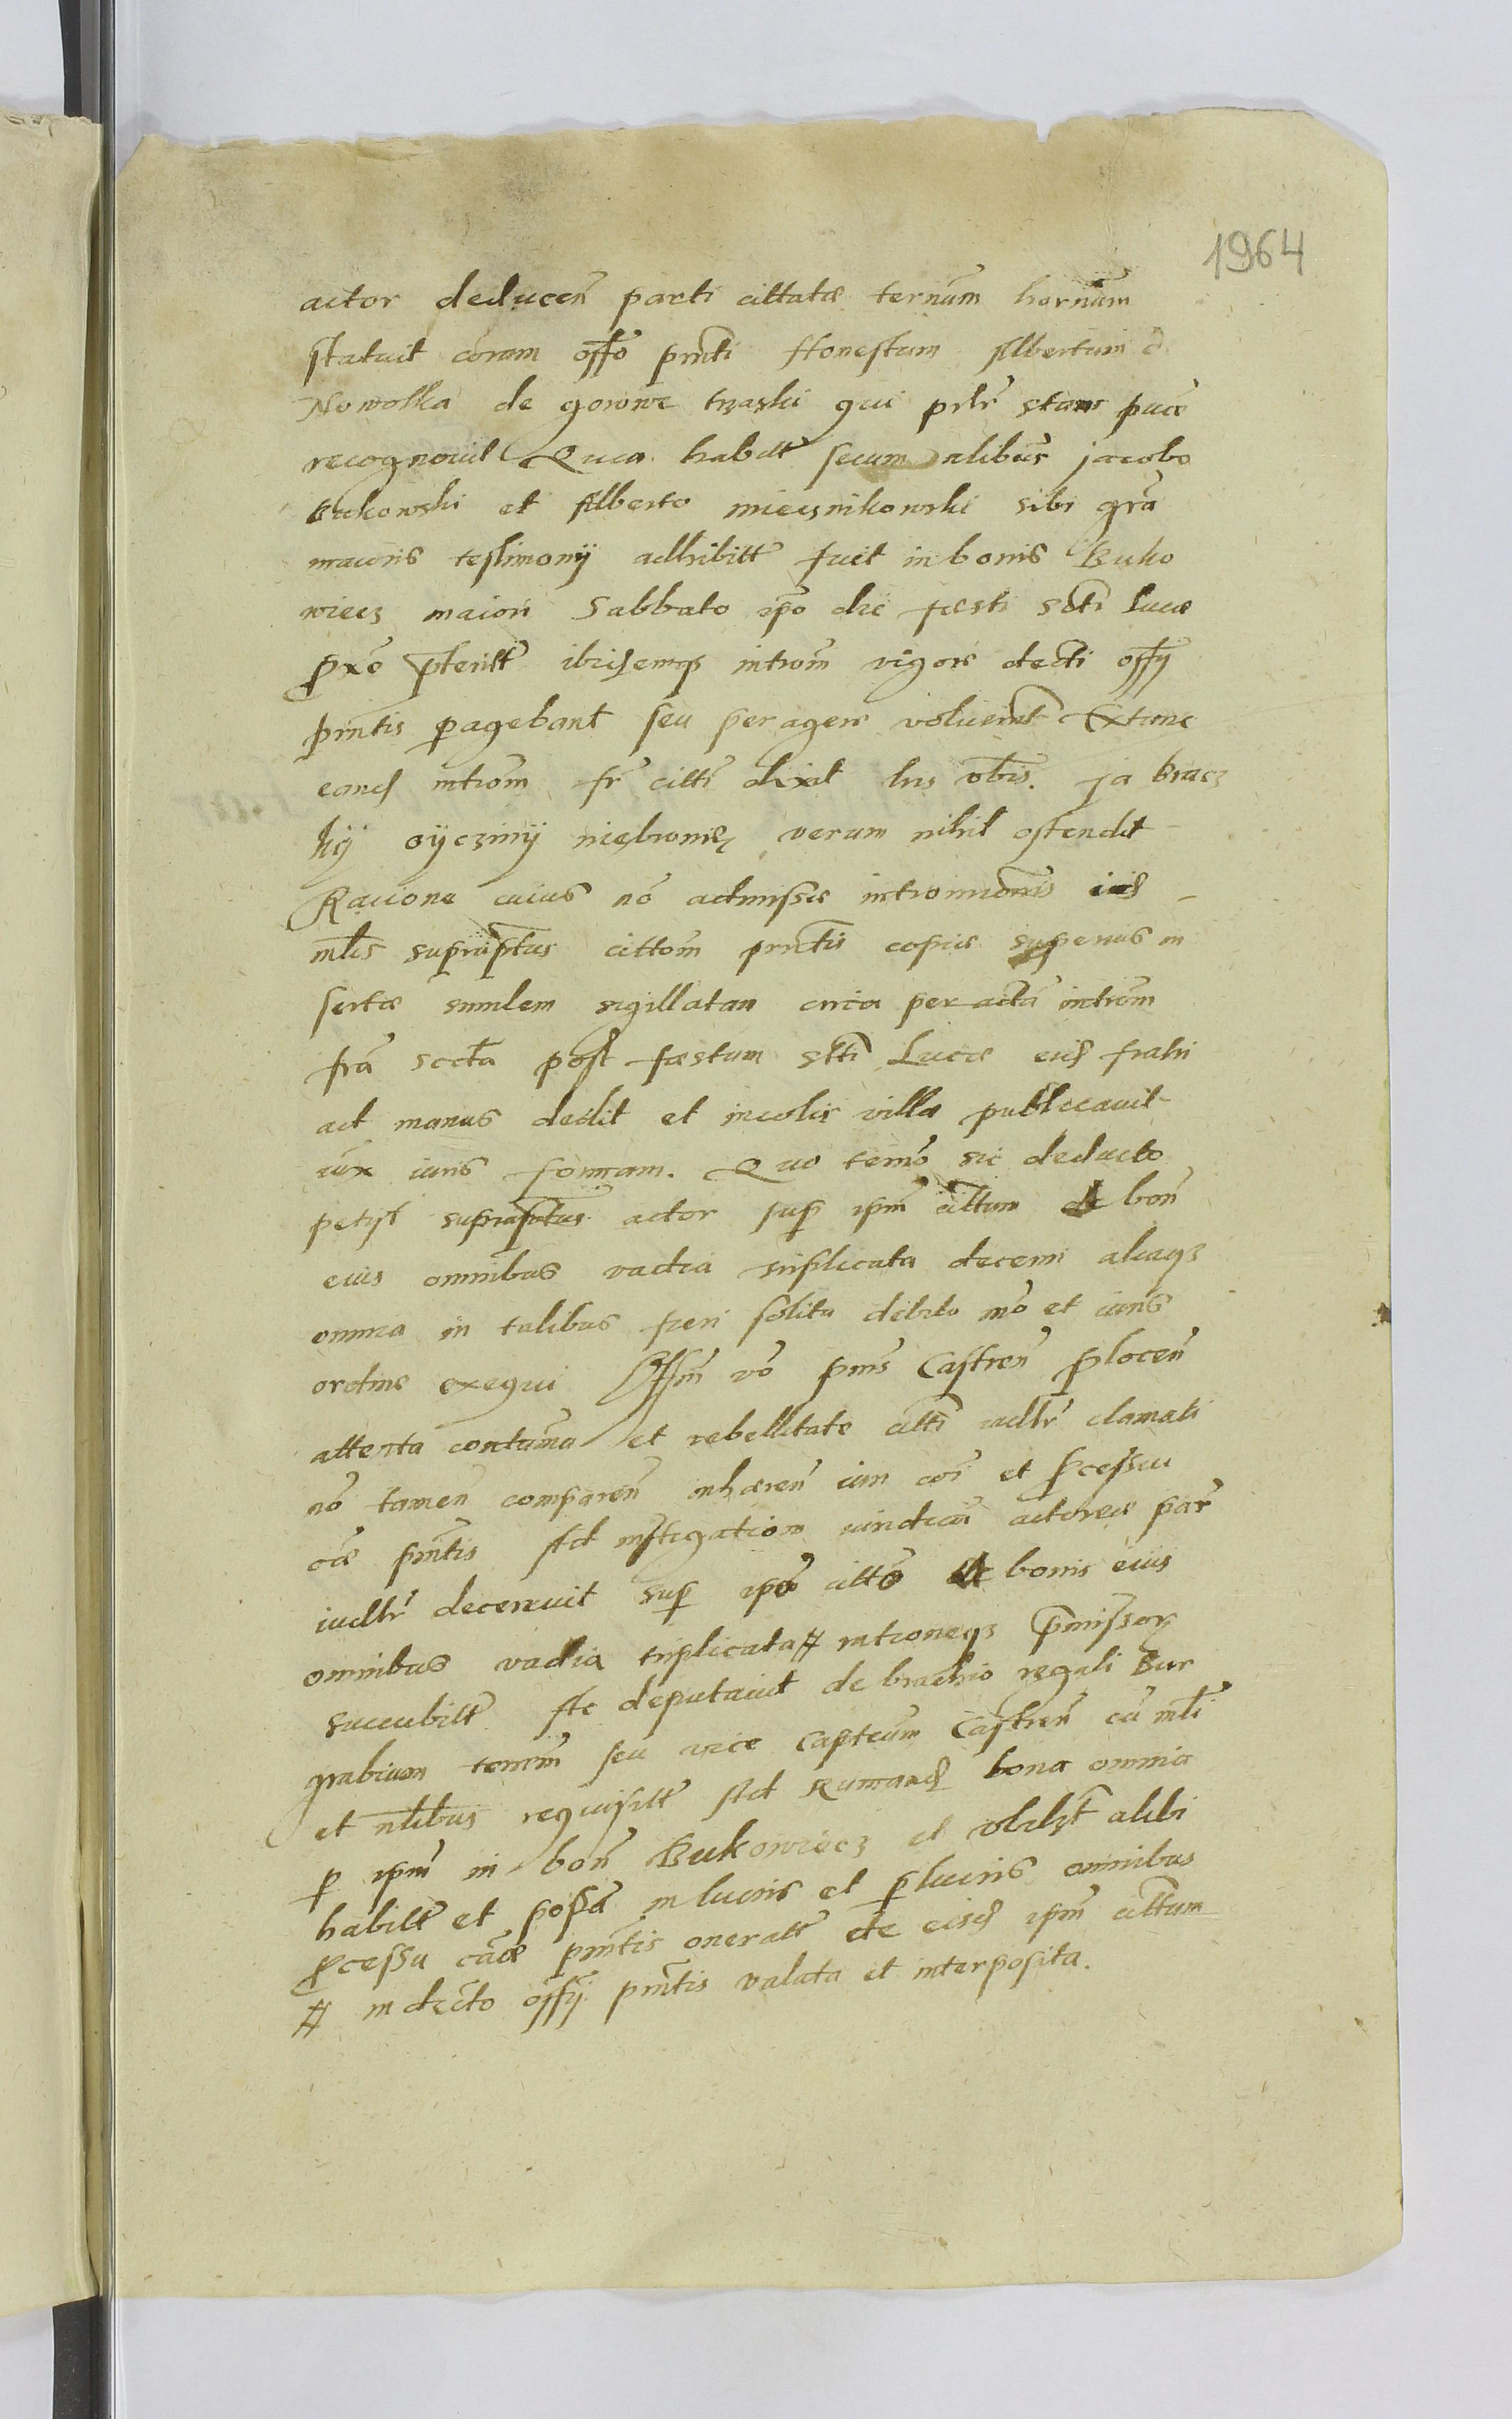 1964
actor deducen parti cittatæ ternum harnum
statuit coram offo pnti Honestum Albertum
Nowolka de gorowe traski qui prlr stans puce
recognouit Quia habitt secum nlibus jacobo
Bukowski et Alberto miecznikowski sibi gra
maioris testimonij adhibitt fuit in bonis Buko
wiecz maiori Sabbato ipo die fæsti scti lucæ
pxe pteritt ibidemqz introm vigore decti offij
pntis pagebant seu peragere voluerunt Extunc
eand introm fr citti dixit his vbis. ja bracz
kij oijczinij niebronię verum nihil ostendit
Racione cuius no admissæ intromionis
nlis suprascptus cittom pntis copiæ superius in
sertæ similem sigillatam circa peractã introm
fra scda post fæstum scti Lucæ eid fratri
ad manus dedit et incolis villæ publicauit
iux iuris formam. Quo termo sic deducto
petijt suprascptus actor sup ipm cittum de bon
eius omnibus vadia triplicata decerni aliaqz
omnia in talibus fieri solita debito mo et iuris
ordine exequi Offm vo pns Castren plocen
attenta contuma et rebellitate citti iudlr clamati
no tamen comparen inhæren iuri coi et pcessui
cæ pntis Ad instigationem iuridicam actoreæ par
iudlr decereuit sup ipo citto de bonis eius
omnibus vadia triplicata # introneqz pmissor
succubitt Ac deputauit de brachio regali Bur
grabium terrem seu vice Capteum Castren cu nli
et nlibus requisitt Ad Rumand bona omnia
p ipm in bon Bukowiecz et vbilzt alibi
habitt et possa in lucris et plucris omnibus
pcessu causæ pntis oneratt de eisd ipm cittum
# in decto offij pntis valata et interposita.